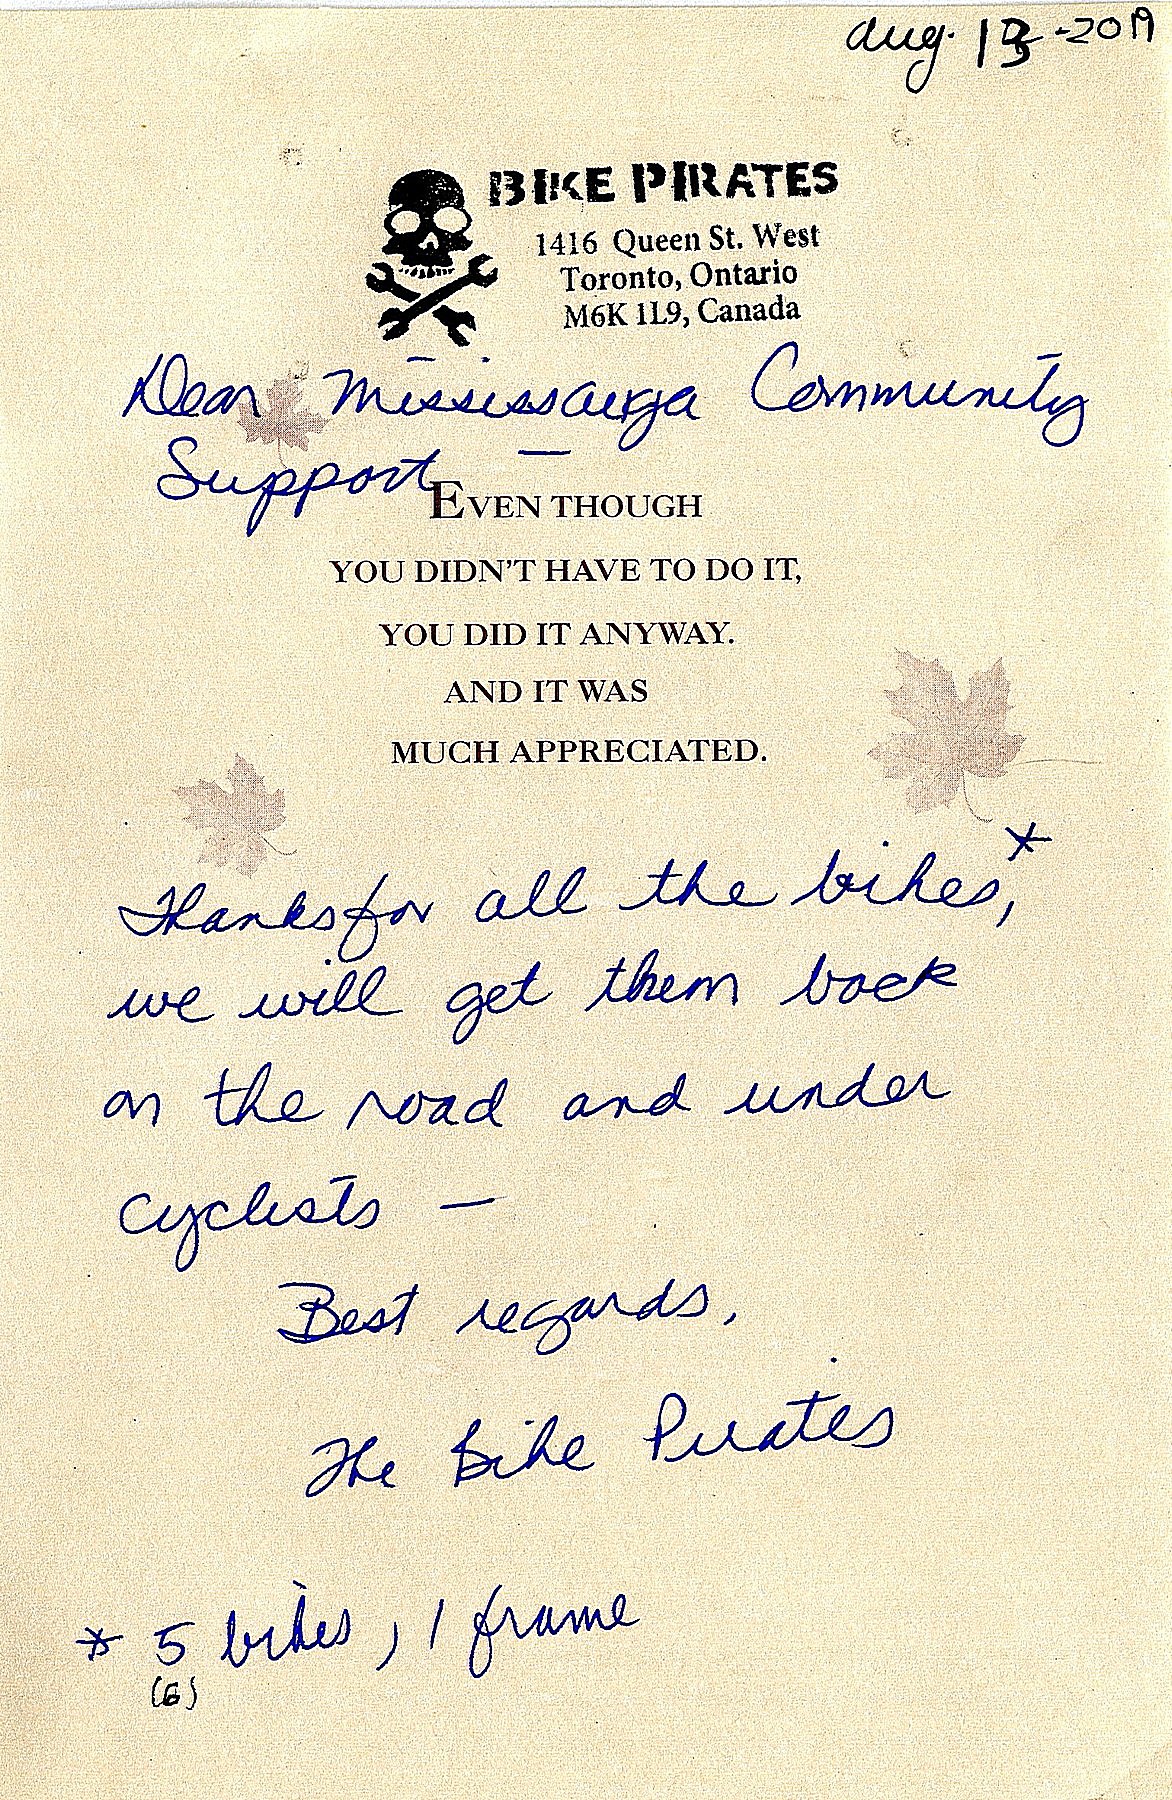 Aug. 13-2019
BIKE PIRATES
1416 Queen St. West
Toronto, Ontario
M6K 1L9, Canada
Dear Mississauga Community
Support —
EVEN THOUGH
YOU DIDN'T HAVE TO DO IT,
YOU DID IT ANYWAY.
AND IT WAS
MUCH APPRECIATED.
Thanks for all the bikes,*
we will get them back
on the road and under
cyclists —
Best regards,
The Bike Pirates
* 5 bikes, 1 frame
(6)